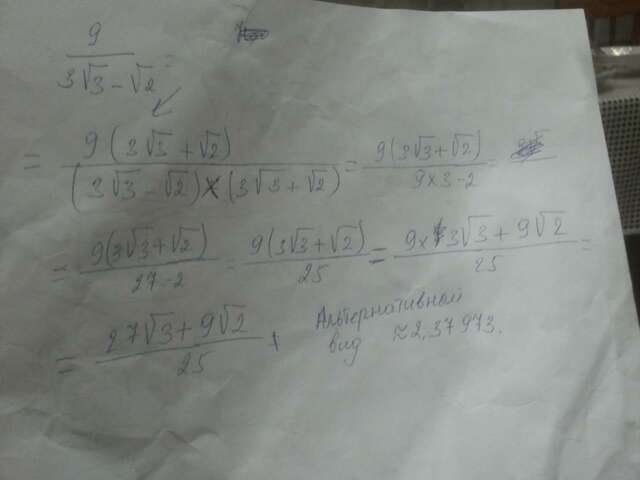 9 / (3√3 - √2) =
= 9(3√3 + √2) / ((3√3 - √2) × (3√3 + √2)) = 9(3√3 + √2) / (9×3-2) =
= 9(3√3 + √2) / (27-2) = 9(3√3 + √2) / 25 = (9×3√3 + 9√2) / 25 =
= (27√3 + 9√2) / 25
Альтернативный
вид ≈2,37973.